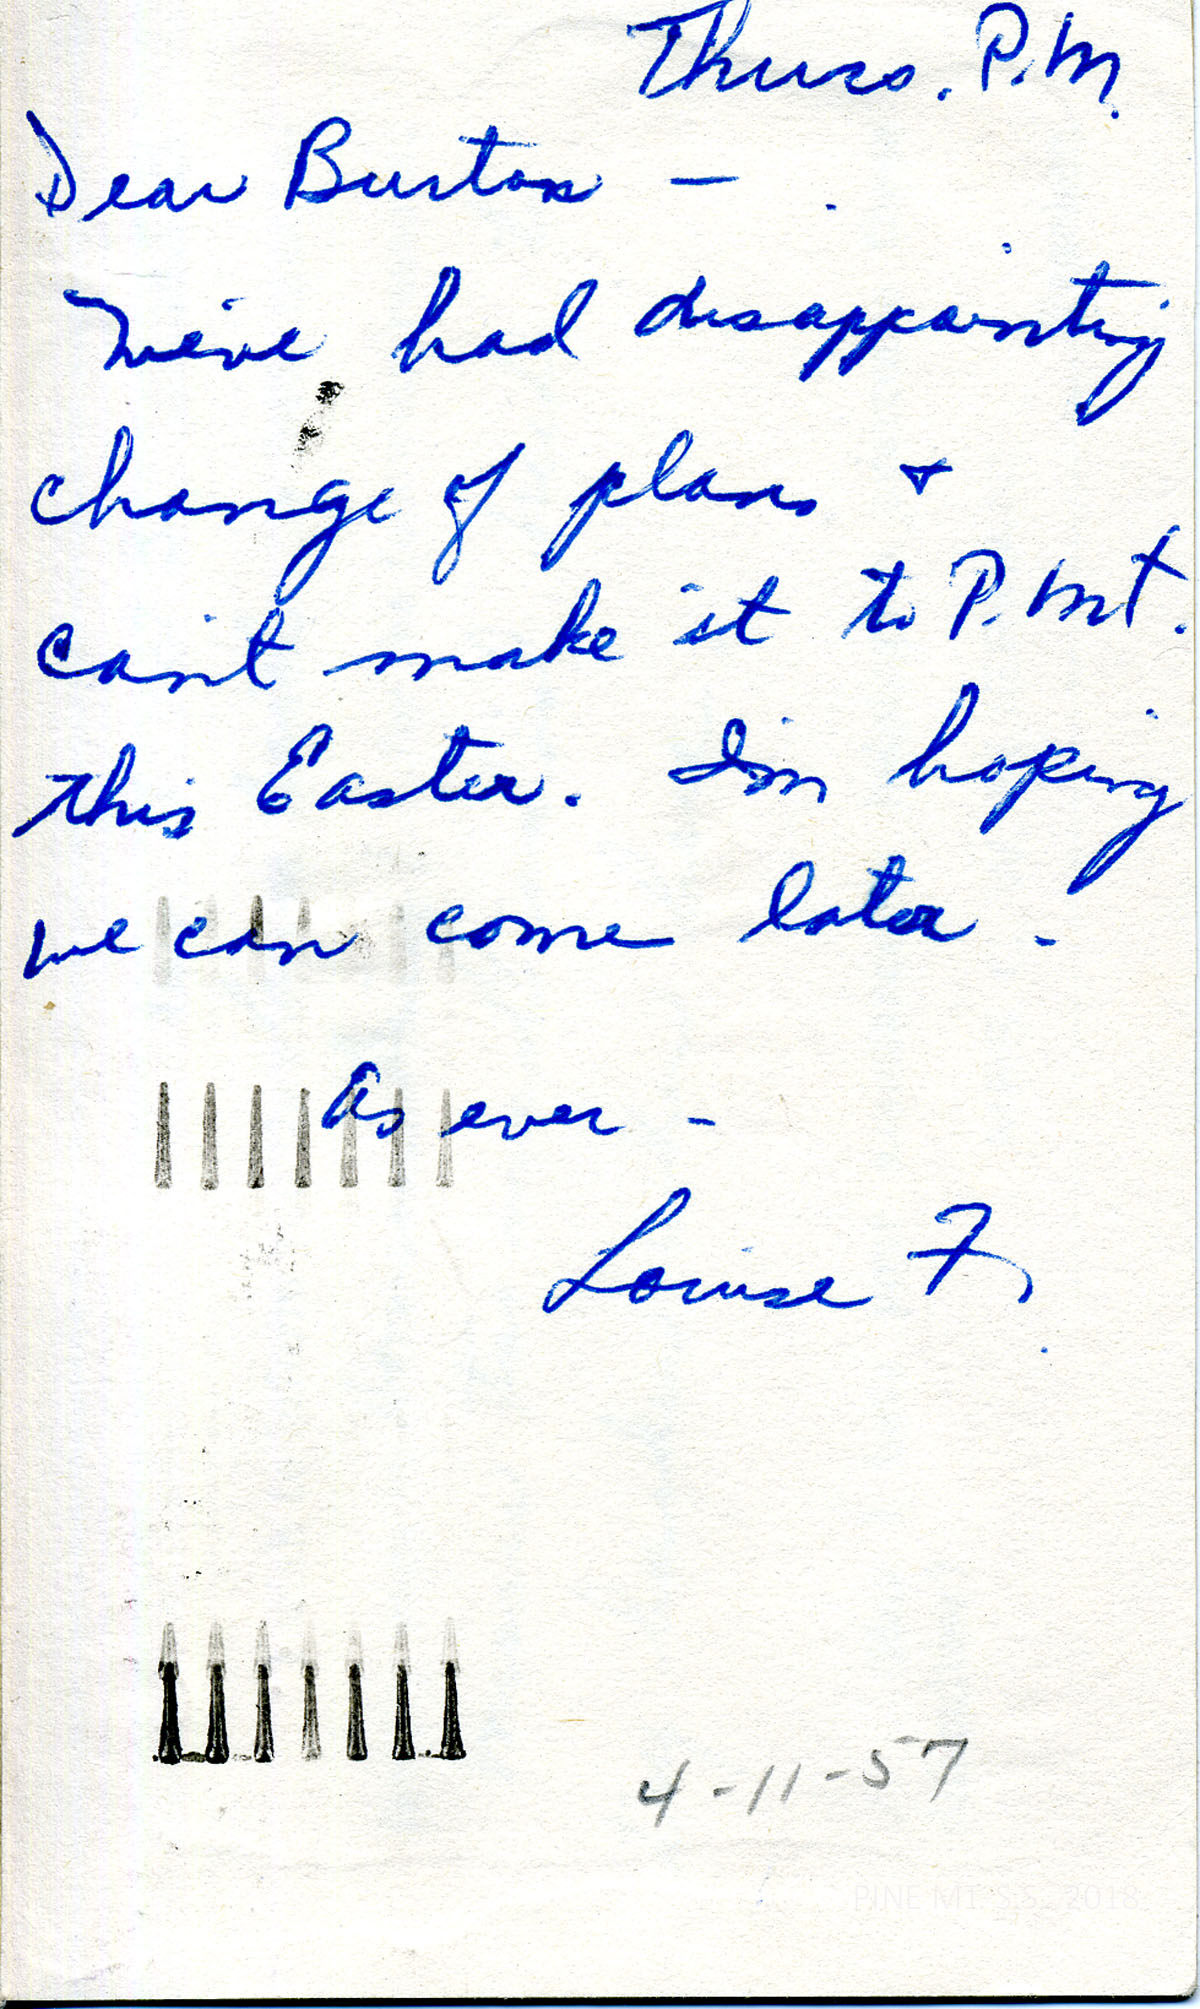 Thurs. P.M.
Dear Burton —
We've had disappointing
change of plans +
can't make it to P. Mt.
this Easter. I'm hoping
we can come later -
As ever -
Louise F.
4-11-57
PINE MT. S.S. 2018